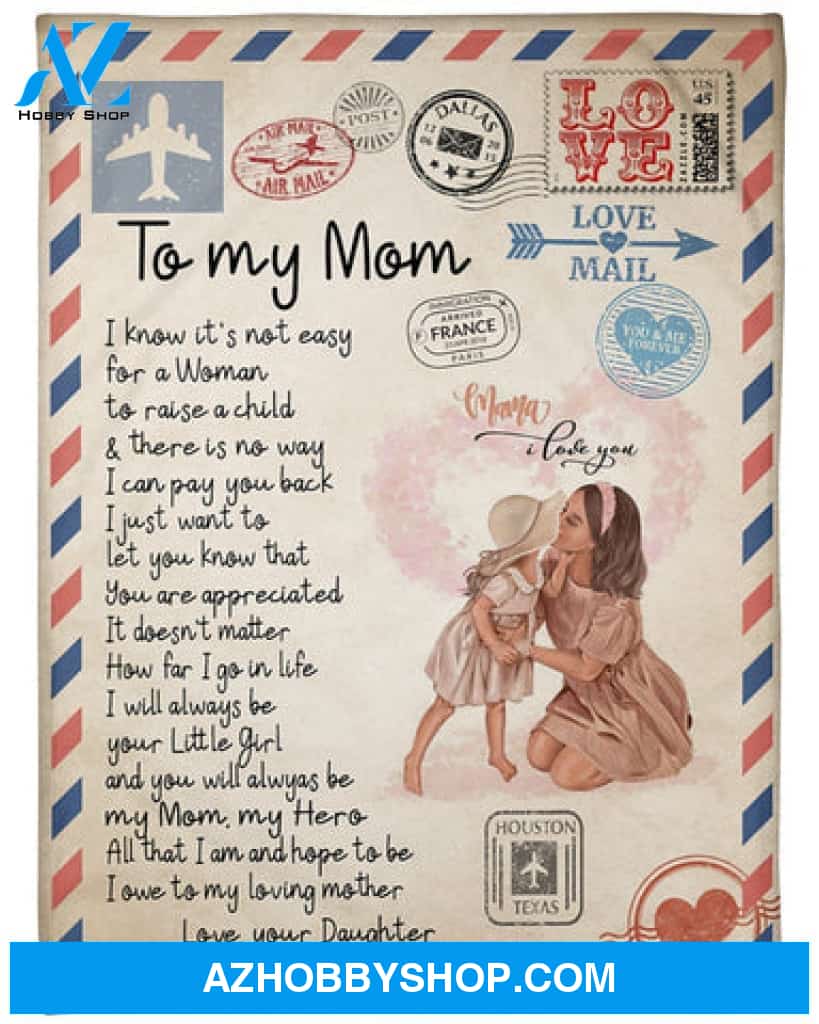 AZ
HOBBY SHOP
AIR MAIL
AIR MAIL
POST
DALLAS
LOVE
U.S.
45
ZAZZLE.COM
To my Mom
LOVE
MAIL
IMMIGRATION
ARRIVED
FRANCE
PARIS
YOU & ME
FOREVER
Mama
i love you
I know it's not easy
for a Woman
to raise a child
& there is no way
I can pay you back
I just want to
let you know that
You are appreciated
It doesn't matter
How far I go in life
I will always be
your Little Girl
and you will alwyas be
my Mom, my Hero
All that I am and hope to be
I owe to my loving mother
Love, your Daughter
HOUSTON
TEXAS
AZHOBBYSHOP.COM